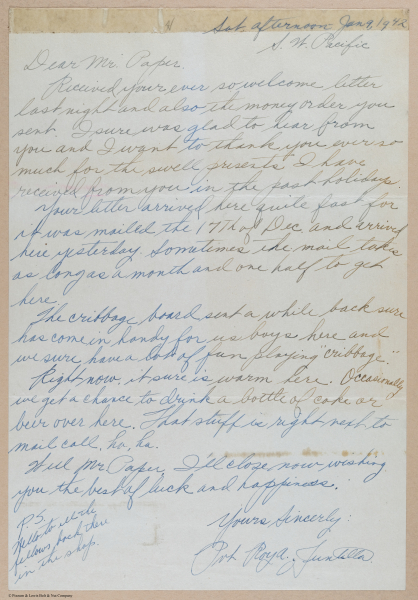 Sat. afternoon Jan 9, 1942
S. W. Pacific
Dear Mr. Paper.
Recieved your ever so welcome letter
last night and also the money order you
sent. I sure was glad to hear from
you and I want to thank you ever so
much for the swell presents I have
received from you in the past holidays.
Your letter arrived here quite fast for
it was mailed the 17th of Dec and arrived
here yesterday. Sometimes the mail takes
as long as a month and one half to get
here.
The cribbage board sent a while back sure
has come in handy for us boys here and
we sure have a lot of fun playing cribbage."
Right now it sure is warm here. Occasionally
we get a chance to drink a bottle of coke or
beer over here. That stuff is right next to
mail call, ha, ha.
Well Mr Paper, I'll close now wishing
you the best of luck and happiness.
Yours Sincerly:
Pvt. Roy A. Juntilla
P.S.
Hello to all the
fellows back there
in the shop.
© Pioneer & Lewis Bolt & Nut Company